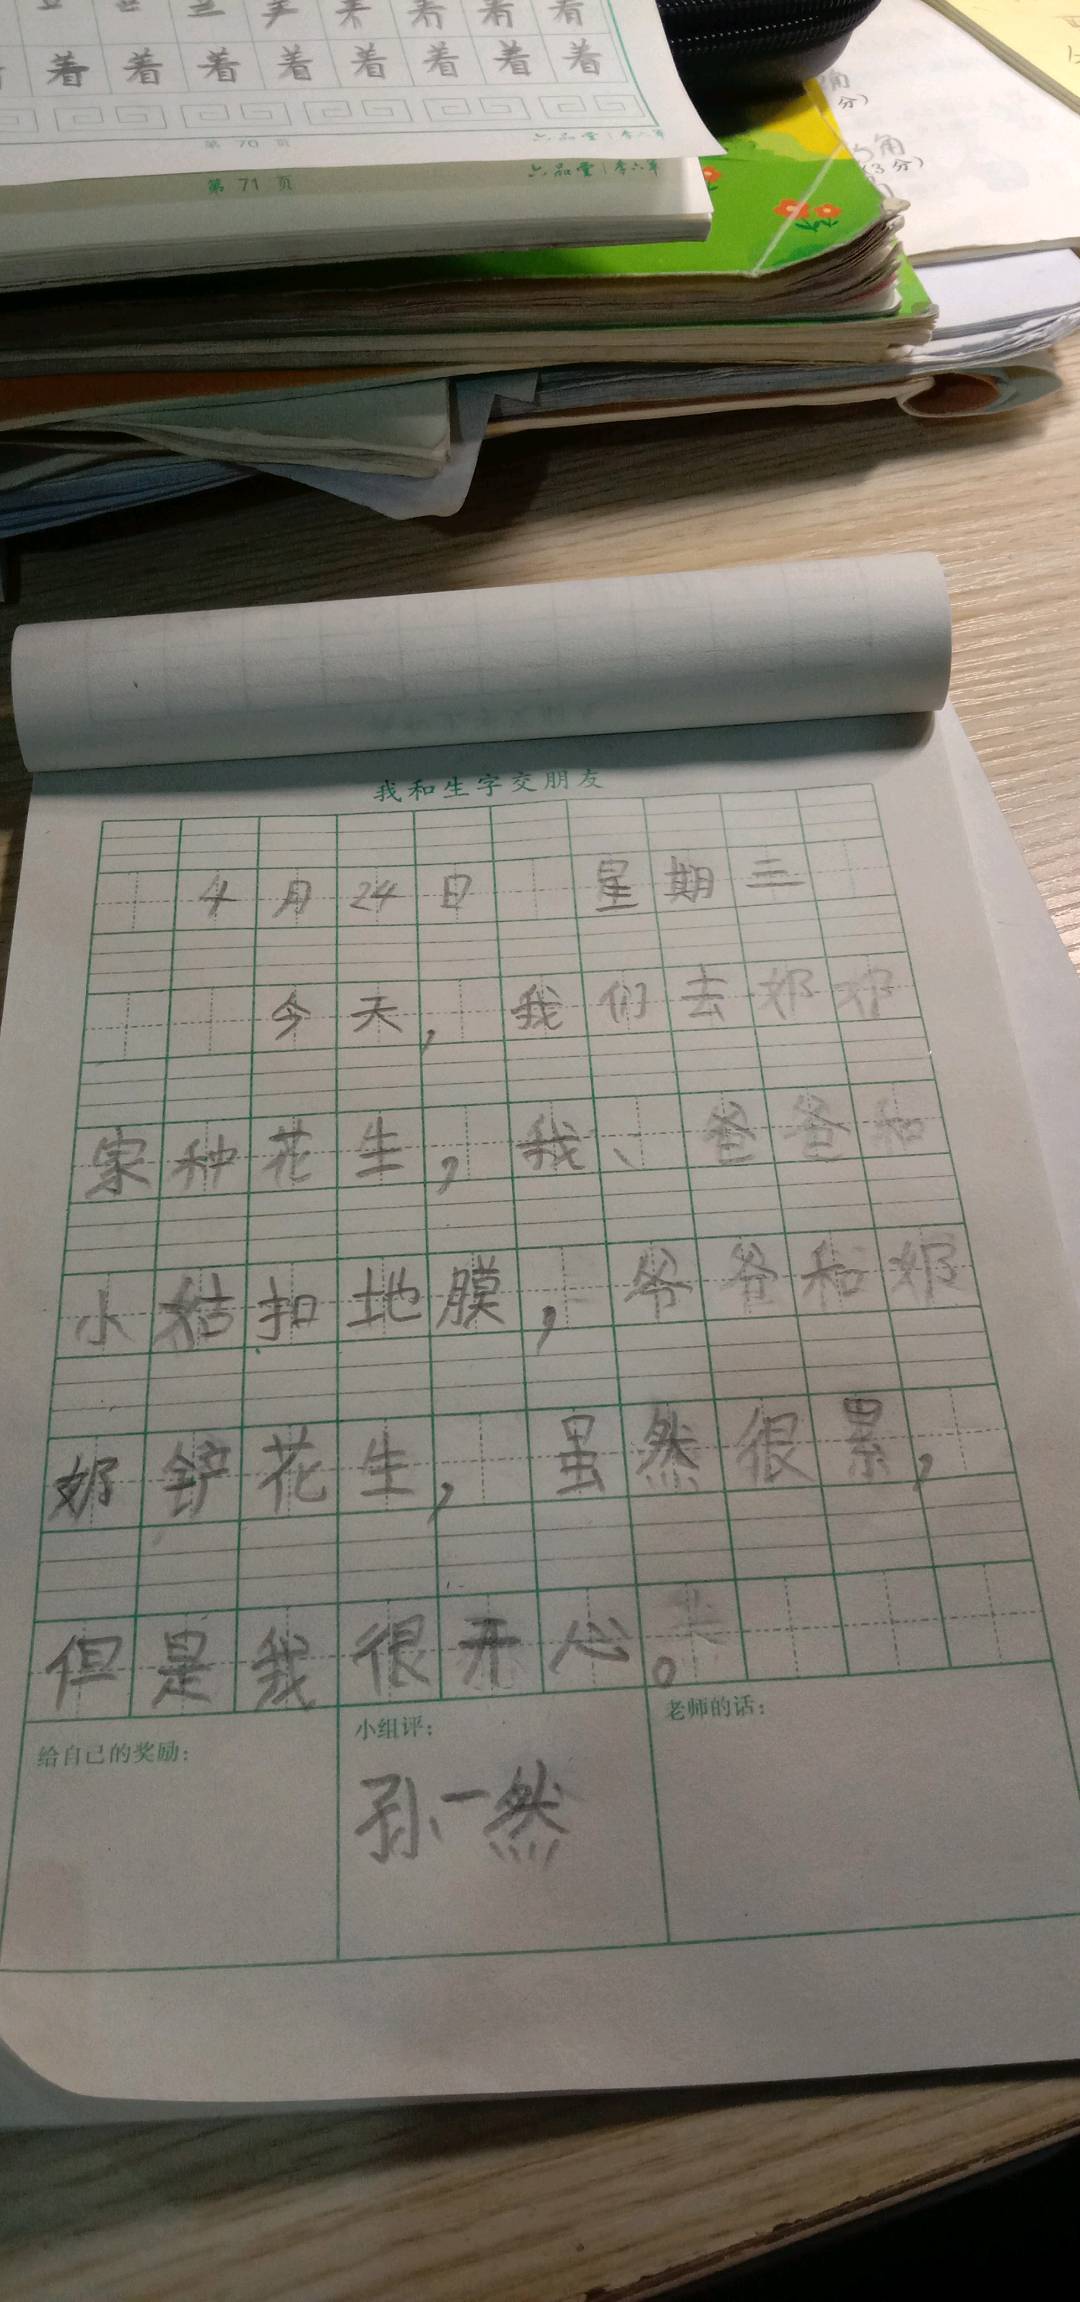 着 着 着 着 着 着 着 着
第 70 页 六品堂 李六军
第 71 页 六品堂 李六军
分)
角
(3分)
我和生字交朋友
4月24日 星期三
今天，我们去奶奶
家种花生，我、爸爸和
小姑扣地膜，爷爷和奶
奶铲花生，虽然很累，
但是我很开心。
给自己的奖励：
小组评：
老师的话：
孙一然